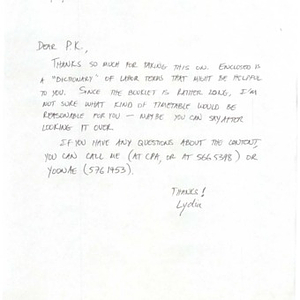 DEAR P.K.,
THANKS SO MUCH FOR TAKING THIS ON. ENCLOSED IS
A "DICTIONARY" OF LABOR TERMS THAT MIGHT BE HELPFUL
TO YOU. SINCE THE BOOKLET IS RATHER LONG, I'M
NOT SURE WHAT KIND OF TIMETABLE WOULD BE
REASONABLE FOR YOU — MAYBE YOU CAN SAY AFTER
LOOKING IT OVER.
IF YOU HAVE ANY QUESTIONS ABOUT THE CONTENT,
YOU CAN CALL ME (AT CPA, OR AT 566 5398) OR
YOONAE (576 1453).
THANKS!
Lydia